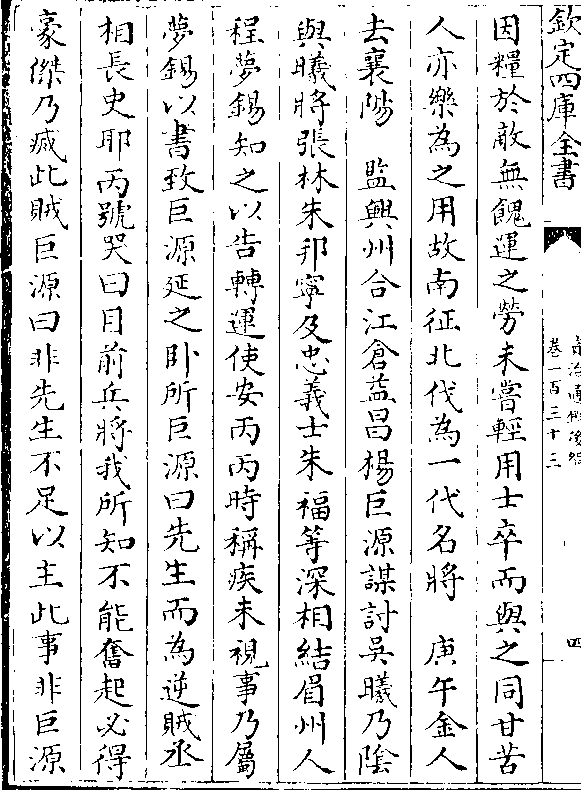 欽定四庫全書
資治通鑑後編
卷一百三十三
四
因糧於敵無餽運之勞未嘗輕用士卒而與之同甘苦
人亦樂為之用故南征北伐為一代名將　庚午金人
去襄陽　監興州合江倉益昌楊巨源謀討吳曦乃陰
與曦將張林朱邦寧及忠義士朱福等深相結眉州人
程夢錫知之以告轉運使安丙丙時稱疾未視事乃屬
夢錫以書致巨源延之卧所巨源曰先生而為逆賊丞
相長史耶丙號哭曰目前兵將我所知不能奮起必得
豪傑乃滅此賊巨源曰非先生不足以主此事非巨源